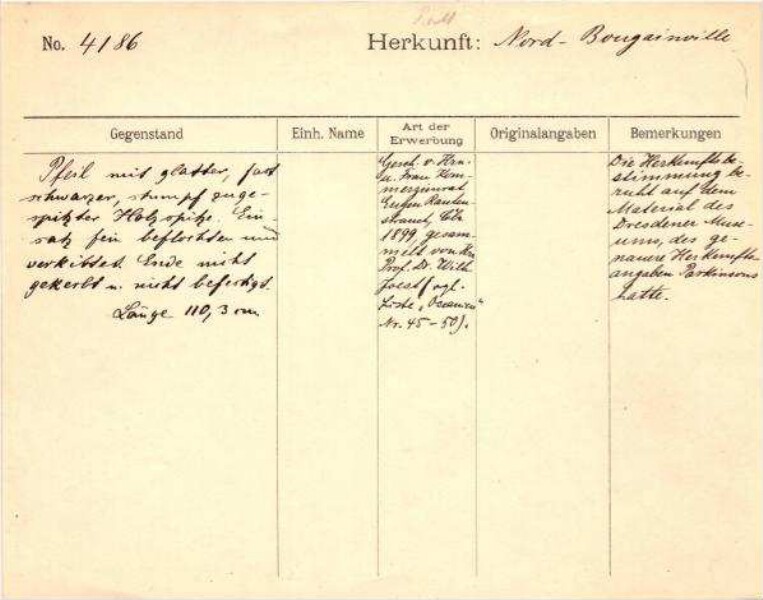 No. 4186
Herkunft: Nord-Bougainville
Gegenstand
Einh. Name
Art der
Erwerbung
Originalangaben
Bemerkungen
Pfeil mit glatter, fast
schwarzer, stumpf zuge-
spitzter Holzspitze. Ein-
satz fein beflochten und
verkittet. Ende nicht
gekerbt u. nicht befestigt.
Länge 110,3 cm.
Gesch. v. Hrn.
u. Frau Kom-
merzienrat
Eugen Rauten-
strauch, Cöln
1899, gesam-
melt von Hn
Prof. Dr. Wilh.
Joest (vgl.
Liste "Oceanien"
Nr. 45-50).
Die Herkunftsbe-
stimmung be-
ruht auf dem
Material des
Dresdener Muse-
ums, das ge-
nauere Herkunfts-
angaben Parkinsons
hatte.